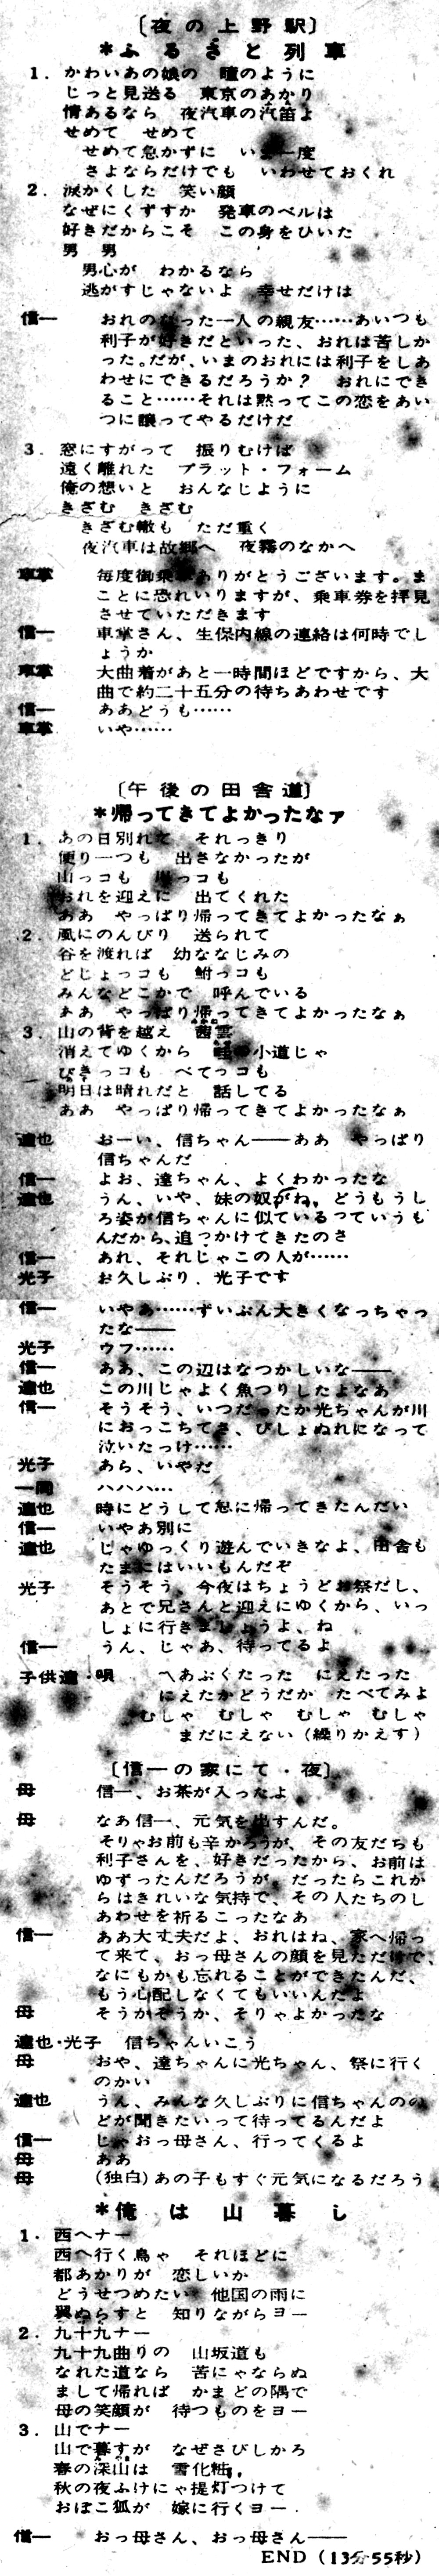 〔夜の上野駅〕
*ふるさと列車
1．かわいあの娘の　瞳のように
じっと見送る　東京のあかり
情あるなら　夜汽車の汽笛よ
せめて　せめて
せめて急かずに　い　一度
さよならだけでも　いわせておくれ
2．涙かくした　笑い顔
なぜにくずすか　発車のベルは
好きだからこそ　この身をひいた
男　男
男心が　わかるなら
逃がすじゃないよ　幸せだけは
信一　おれのたった一人の親友……あいつも
利子が好きだといった、おれは苦しか
った。だが、いまのおれには利子をしあ
わせにできるだろうか？　おれにでき
ること……それは黙ってこの恋をあい
つに譲ってやるだけだ
3．窓にすがって　振りむけば
遠く離れた　プラット・フォーム
俺の想いと　おんなじように
きざむ　きざむ
きざむ轍も　ただ重く
夜汽車は故郷へ　夜霧のなかへ
車掌　毎度御乗車ありがとうございます。ま
ことに恐れいりますが、乗車券を拝見
させていただきます
信一　車掌さん、生保内線の連絡は何時でし
ょうか
車掌　大曲着があと一時間ほどですから、大
曲で約二十五分の待ちあわせです
信一　ああどうも……
車掌　いや……
〔午後の田舎道〕
*帰ってきてよかったなァ
1．あの日別れて　それっきり
便り一つも　出さなかったが
山っコも　っコも
おれを迎えに　出てくれた
ああ　やっぱり帰ってきてよかったなぁ
2．風にのんびり　送られて
谷を渡れば　幼ななじみの
どじょっコも　鮒っコも
みんなどこかで　呼んでいる
ああ　やっぱり帰ってきてよかったなぁ
3．山の背を越え　茜雲
消えてゆくから　小道じゃ
びきっコも　べてっコも
明日は晴れだと　話してる
ああ　やっぱり帰ってきてよかったなぁ
達也　おーい、信ちゃん――ああ　やっぱり
信ちゃんだ
信一　よお、達ちゃん、よくわかったな
達也　うん、いや、妹の奴がね、どうもうし
ろ姿が信ちゃんに似ているっていうも
んだから、追っかけてきたのさ
信一　あれ、それじゃこの人が……
光子　お久しぶり、光子です
信一　いやあ……ずいぶん大きくなっちゃっ
たな――
光子　ウフ……
信一　ああ、この辺はなつかしいな――
達也　この川じゃよく魚つりしたよなあ
信一　そうそう、いつだったか光ちゃんが川
におっこちてさ、びしょぬれになって
泣いたっけ……
光子　あら、いやだ
一同　ハハハ…
達也　時にどうして急に帰ってきたんだい
信一　いやあ別に
達也　じゃゆっくり遊んでいきなよ、田舎も
たまにはいいもんだぞ
光子　そうそう、今夜はちょうどお祭だし、
あとで兄さんと迎えにゆくから、いっ
しょに行きましょうよ、ね
信一　うん、じゃあ、待ってるよ
子供達・唄　〽あぶくたった　にえたった
にえたかどうだか　たべてみよ
むしゃ　むしゃ　むしゃ　むしゃ
まだにえない（繰りかえす）
〔信一の家にて・夜〕
母　信一、お茶が入ったよ
母　なあ信一、元気を出すんだ。
そりゃお前も辛かろうが、その友だちも
利子さんを、好きだったから、お前は
ゆずったんだろうが、だったらこれか
らはきれいな気持で、その人たちのし
あわせを祈るこったなあ
信一　ああ大丈夫だよ、おれはね、家へ帰っ
て来て、おっ母さんの顔を見ただけで、
なにもかも忘れることができたんだ、
もう心配しなくてもいいんだよ
母　そうかそうか、そりゃよかったな
達也・光子　信ちゃんいこう
母　おや、達ちゃんに光ちゃん、祭に行く
のかい
達也　うん、みんな久しぶりに信ちゃんのの
どが聞きたいって待ってるんだよ
信一　じゃおっ母さん、行ってくるよ
母　ああ
母　（独白）あの子もすぐ元気になるだろう
*俺は山暮し
1．西へナー
西へ行く鳥ゃ　それほどに
都あかりが　恋しいか
どうせつめたい　他国の雨に
翼ぬらすと　知りながらヨー
2．九十九ナー
九十九曲りの　山坂道も
なれた道なら　苦にゃならぬ
まして帰れば　かまどの隅で
母の笑顔が　待つものをヨー
3．山でナー
山で暮すが　なぜさびしかろ
春の深山は　雪化粧
秋の夜ふけにゃ提灯つけて
おぼこ狐が　嫁に行くヨー
信一　おっ母さん、おっ母さん――
END（13分55秒）